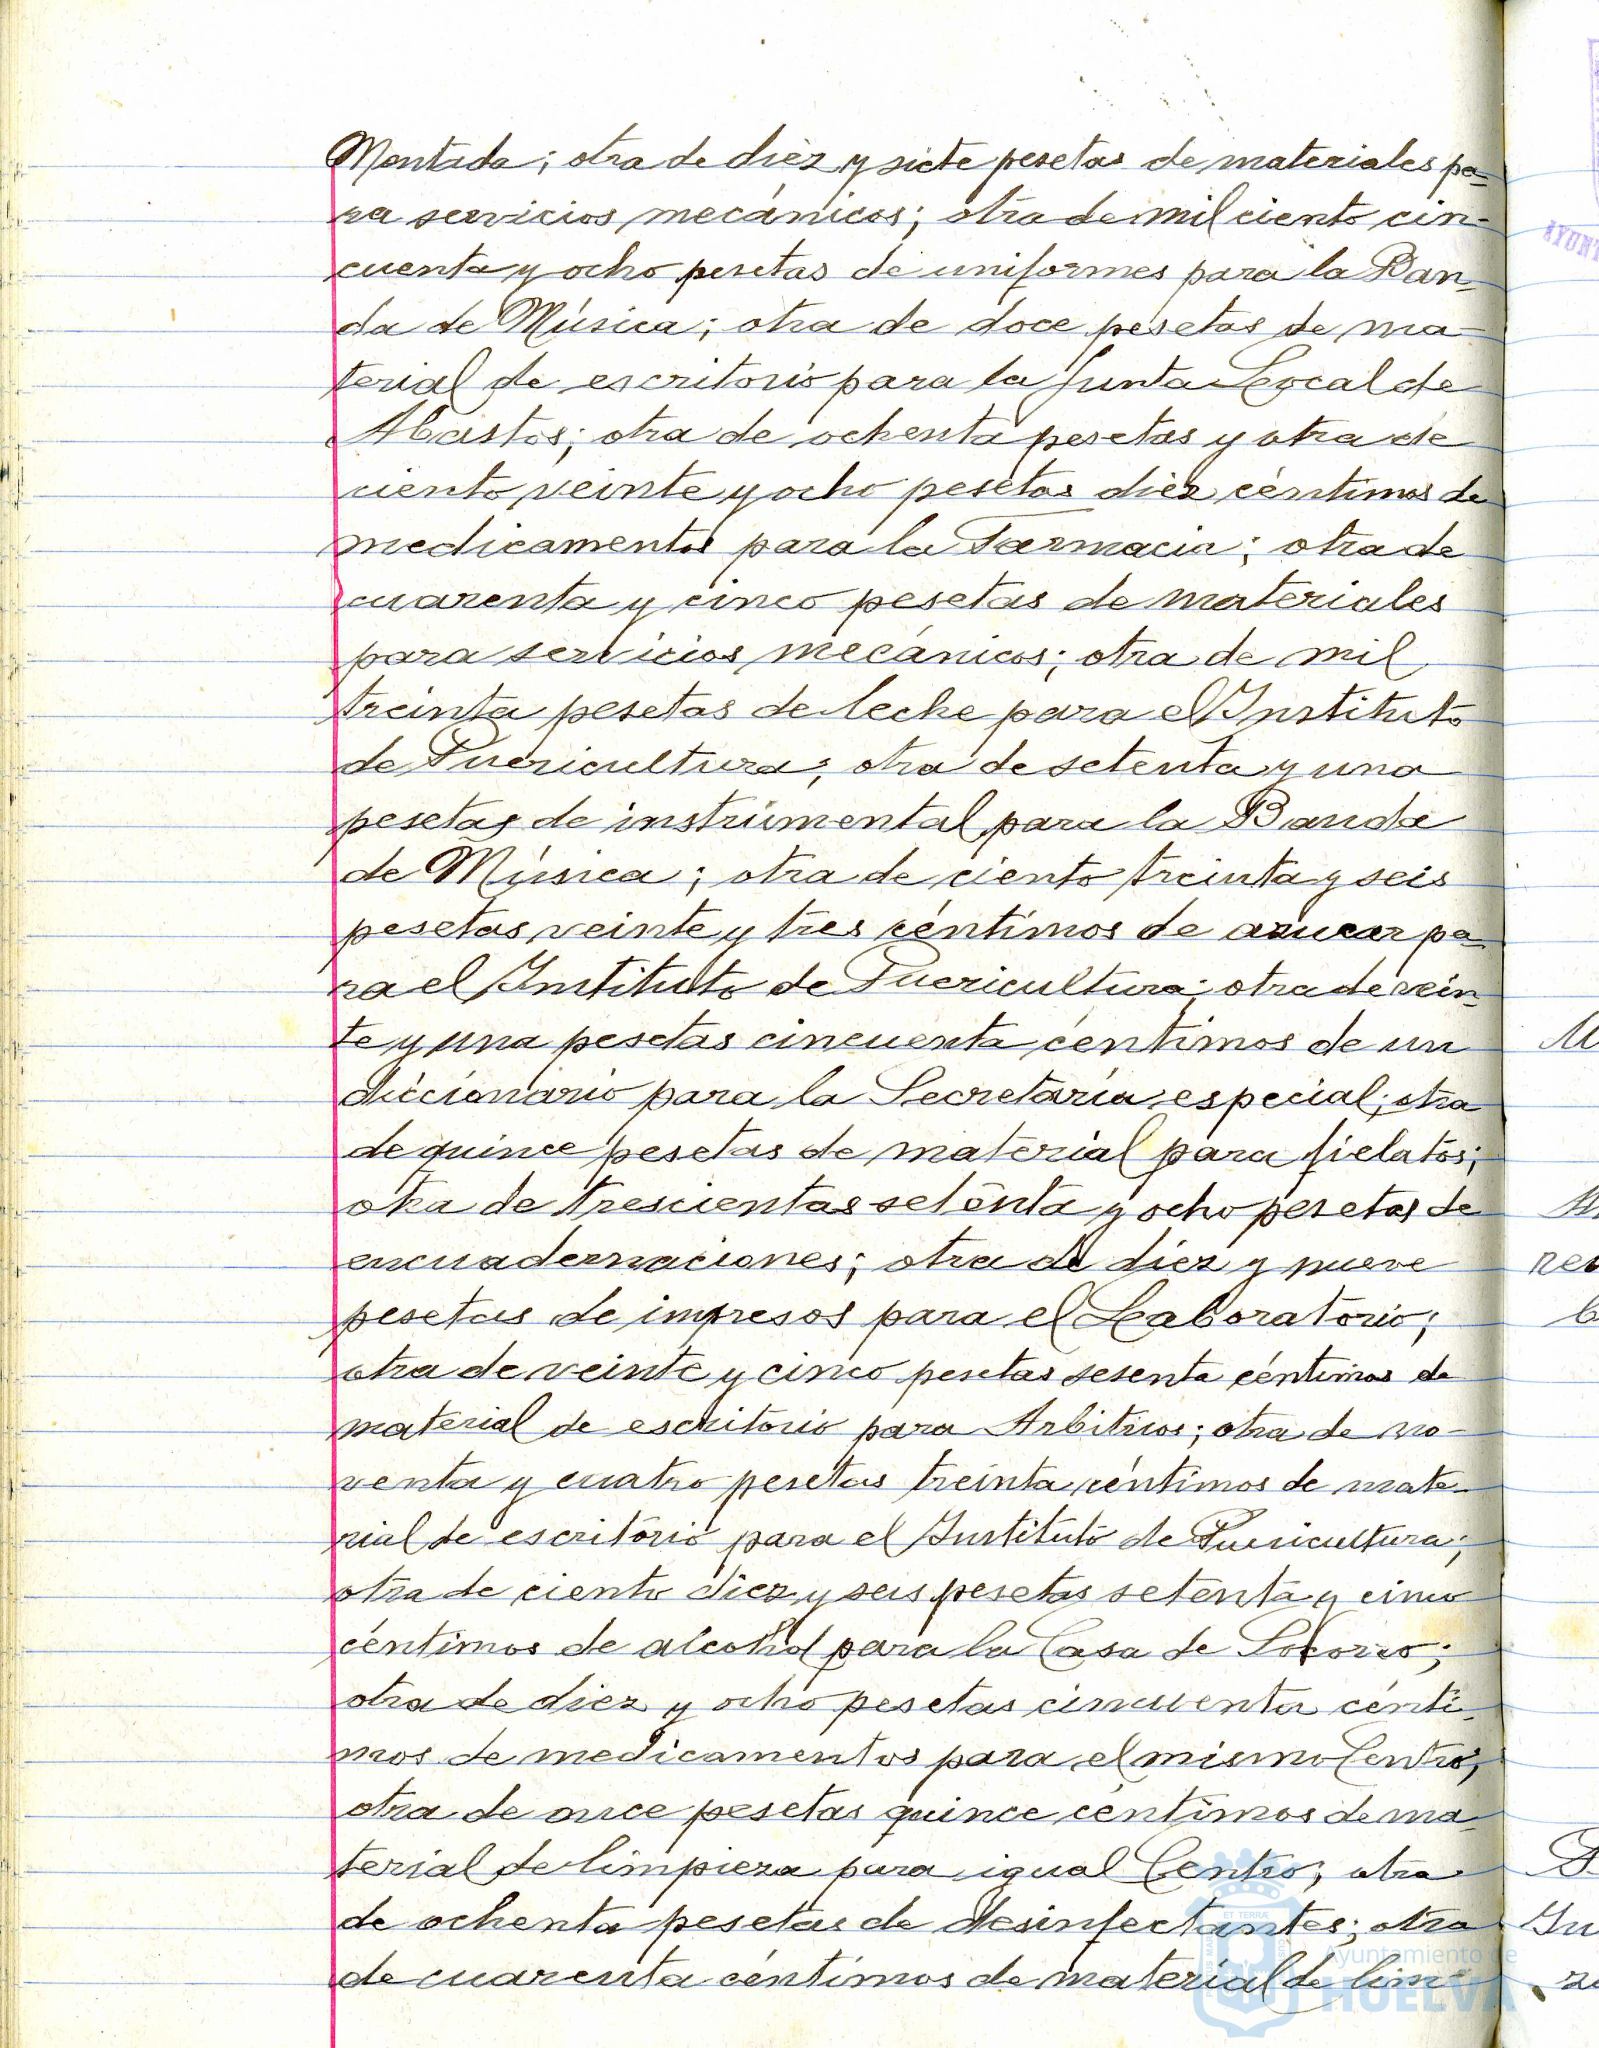 Montada; otra de diez y siete pesetas de materiales pa-
ra servicios mecánicos; otra de mil ciento cin-
cuenta y ocho pesetas de uniformes para la Ban-
da de Música; otra de doce pesetas de ma-
terial de escritorio para la Junta Local de
Abastos; otra de ochenta pesetas y otra de
ciento veinte y ocho pesetas diez céntimos de
medicamentos para la Farmacia; otra de
cuarenta y cinco pesetas de materiales
para servicios mecánicos; otra de mil
treinta pesetas de leche para el Instituto
de Puericultura; otra de setenta y una
pesetas de instrumental para la Banda
de Música; otra de ciento treinta y seis
pesetas veinte y tres céntimos de azucar pa-
ra el Instituto de Puericultura; otra de vein-
te y una pesetas cincuenta céntimos de un
diccionario para la Secretaría especial; otra
de quince pesetas de material para fielatos;
otra de trescientas setenta y ocho pesetas de
encuadernaciones; otra de diez y nueve
pesetas de impresos para el Laboratorio;
otra de veinte y cinco pesetas sesenta céntimos de
material de escritorio para Arbitrios; otra de no-
venta y cuatro pesetas treinta céntimos de mate-
rial de escritorio para el Instituto de Puericultura;
otra de ciento diez y seis pesetas setenta y cinco
céntimos de alcohol para la Casa de Socorro;
otra de diez y ocho pesetas cincuenta cénti-
mos de medicamentos para el mismo Centro;
otra de once pesetas quince céntimos de ma-
terial de limpieza para igual Centro; otra
de ochenta pesetas de desinfectantes; otra
de cuarenta céntimos de material de lim-
Ayuntamiento de
HUELVA